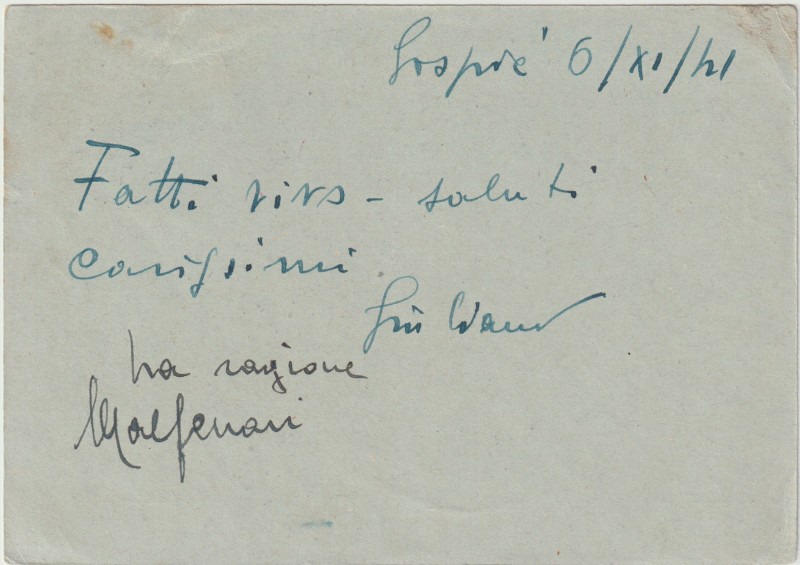 Gospić 6/XI/41
Fatti vivo - saluti
carissimi
Giuliano
ha ragione
Malfenari